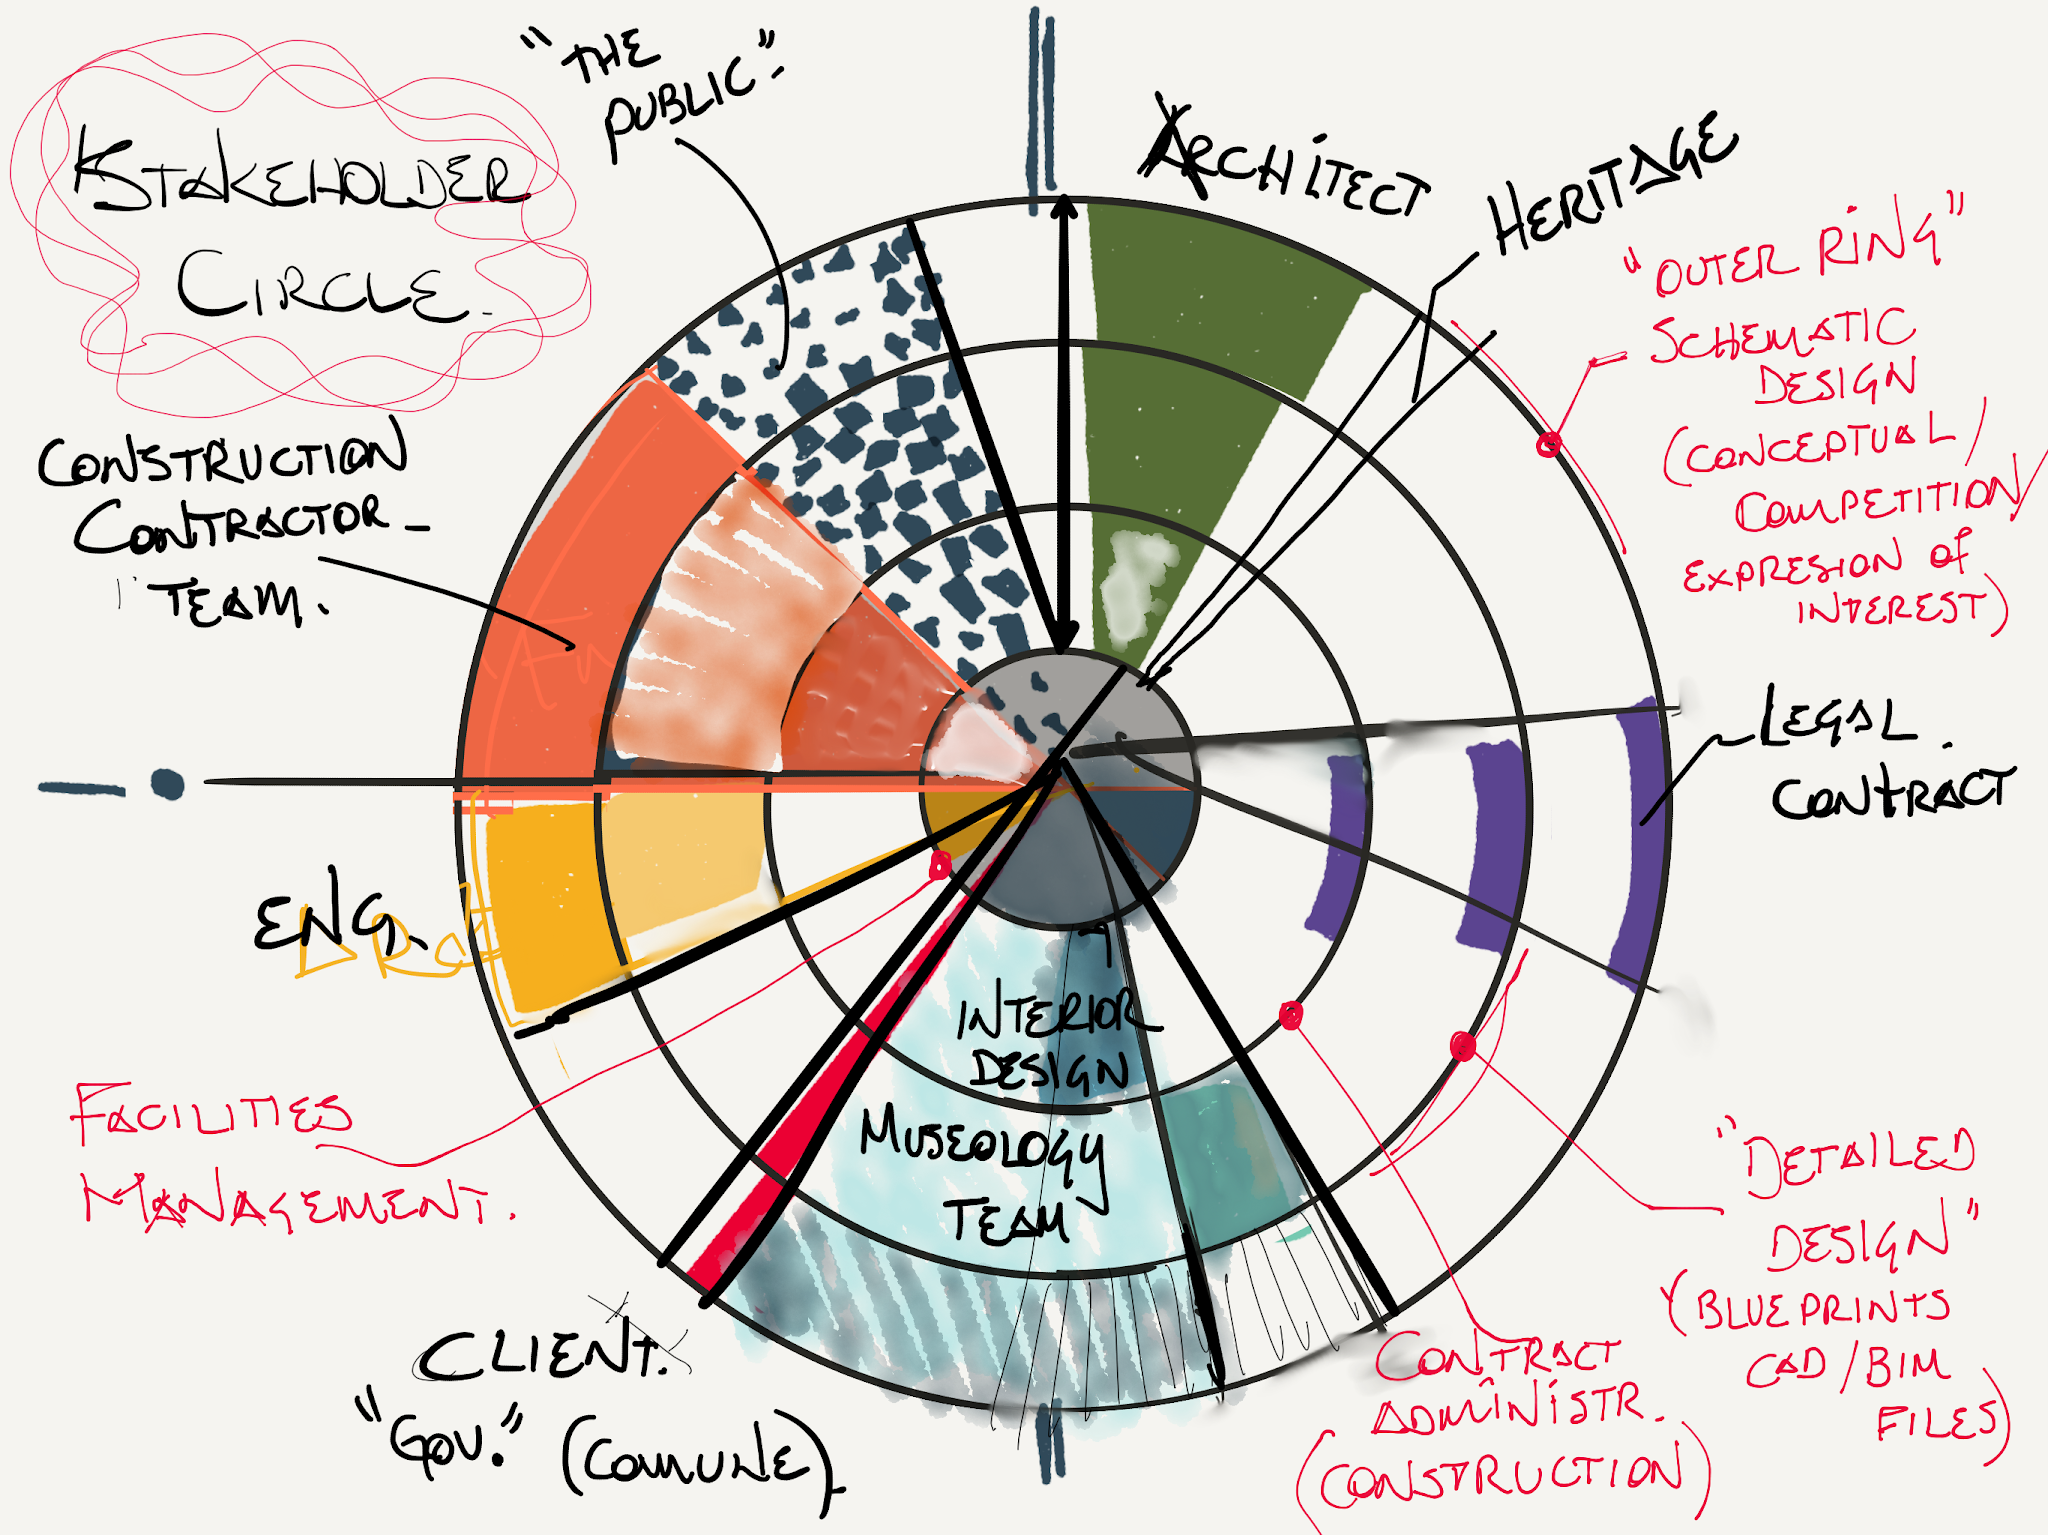 STAKEHOLDER
CIRCLE.
"THE
PUBLIC".
ARCHITECT
HERITAGE
"OUTER RING"
SCHEMATIC
DESIGN
(CONCEPTUAL/
COMPETITION/
EXPRESION OF
INTEREST)
CONSTRUCTION
CONTRACTOR-
TEAM.
LEGAL
CONTRACT
ENG.
INTERIOR
DESIGN
MUSEOLOGY
TEAM
FACILITIES
MANAGEMENT.
CLIENT.
"GOV." (COMUNE)
CONTRACT
ADMINISTR.
(CONSTRUCTION)
"DETAILED
DESIGN"
(BLUEPRINTS
CAD/BIM
FILES)